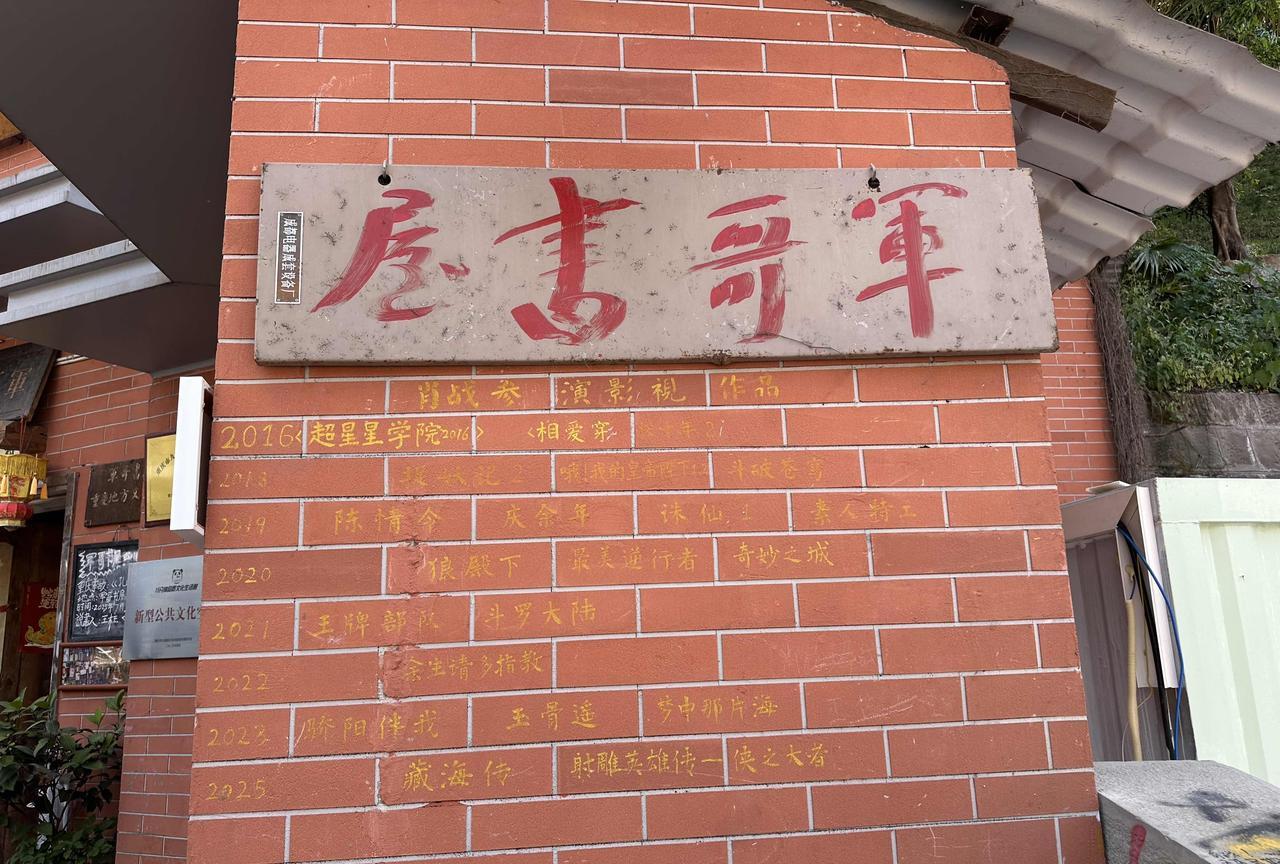 軍哥書屋
成都电器成套设备厂
肖战参演影視作品
2016《超星星学院2016》 《相爱穿梭千年2》
2018 捉妖记2 哦!我的皇帝陛下1.2 斗破苍穹
2019 陈情令 庆余年 诛仙.1 素人特工
2020 狼殿下 最美逆行者 奇妙之城
2021 王牌部队 斗罗大陆
2022 余生请多指教
2023 骄阳伴我 玉骨遥 梦中那片海
2025 藏海传 射雕英雄传一侠之大者
軍
新型公共文化空